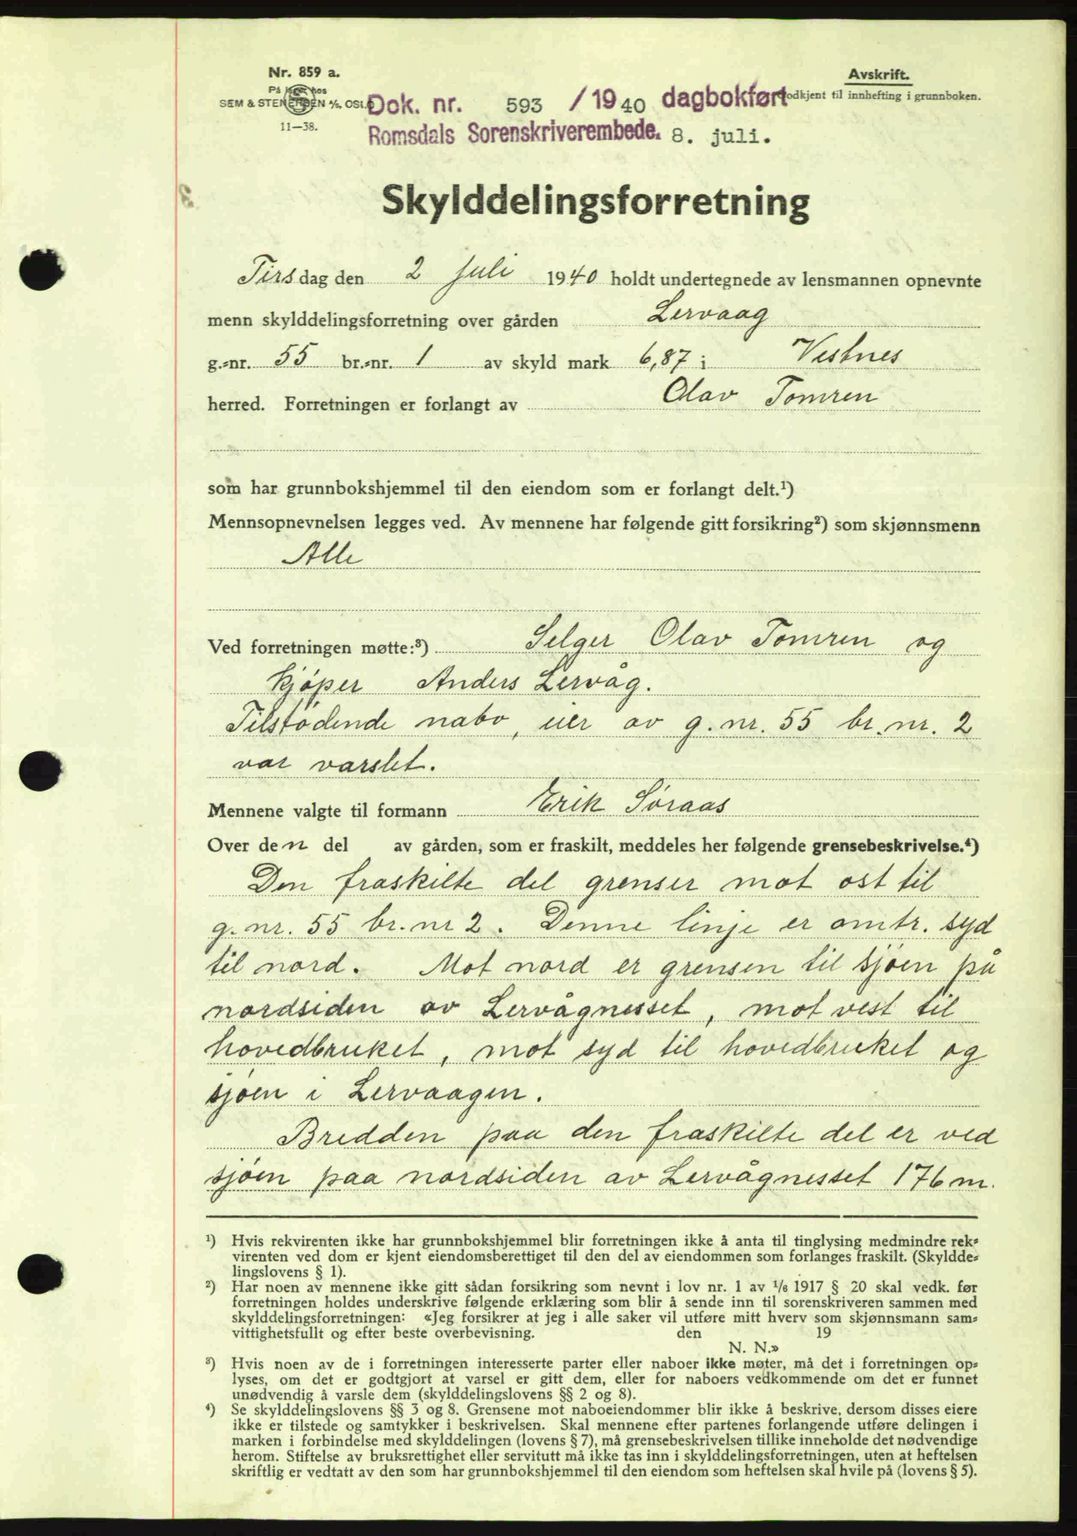 Nr. 859 a.
På lager hos
SEM & STENERSEN A/S, OSLO
11—38.
Avskrift.
Godkjent til innhefting i grunnboken.
Dok. nr. 593 /1940 dagbokført
Romsdals Sorenskriverembede. 8. juli.
Skylddelingsforretning
Tirsdag den 2 Juli 1940 holdt undertegnede av lensmannen opnevnte
menn skylddelingsforretning over gården Lervaag
g.-nr. 55 br.-nr. 1 av skyld mark 6,87 i Vestnes
herred. Forretningen er forlangt av Olav Tomren
som har grunnbokshjemmel til den eiendom som er forlangt delt.¹)
Mennsopnevnelsen legges ved. Av mennene har følgende gitt forsikring²) som skjønnsmenn
Alle
Ved forretningen møtte:³) Selger Olav Tomren og
kjöper Anders Lervåg.
Tilstödende nabo, eier av g.nr. 55 br.nr. 2
var varslet.
Mennene valgte til formann Erik Söraas
Over den del av gården, som er fraskilt, meddeles her følgende grensebeskrivelse.⁴)
Den fraskilte del grenser mot ost til
g.nr. 55 br.nr 2. Denne linje er omtr. syd
til nord. Mot nord er grensen til sjöen på
nordsiden av Lervågnesset, mot vest til
hovedbruket, mot syd til hovedbruket og
sjöen i Lervaagen.
Bredden paa den fraskilte del er ved
sjöen paa nordsiden av Lervågnesset 176 m.
¹) Hvis rekvirenten ikke har grunnbokshjemmel blir forretningen ikke å anta til tinglysing medmindre rek-
virenten ved dom er kjent eiendomsberettiget til den del av eiendommen som forlanges fraskilt. (Skyldde-
lingslovens § 1).
²) Har noen av mennene ikke gitt sådan forsikring som nevnt i lov nr. 1 av 1/6 1917 § 20 skal vedk. før
forretningen holdes underskrive følgende erklæring som blir å sende inn til sorenskriveren sammen med
skylddelingsforretningen: «Jeg forsikrer at jeg i alle saker vil utføre mitt hverv som skjønnsmann sam-
vittighetsfullt og efter beste overbevisning. den 19
N. N.»
³) Hvis noen av de i forretningen interesserte parter eller naboer ikke møter, må det i forretningen op-
lyses, om det er godtgjort at varsel er gitt dem, eller for naboers vedkommende om det er funnet
unødvendig å varsle dem (skylddelingslovens §§ 2 og 8).
⁴) Se skylddelingslovens §§ 3 og 8. Grensene mot naboeiendommer blir ikke å beskrive, dersom disses eiere
ikke er tilstede og samtykker i beskrivelsen. Skal mennene efter partenes forlangende utføre delingen i
marken i forbindelse med skylddelingen (lovens § 7), må grensebeskrivelsen tillike inneholde det nødvendige
herom. Stiftelse av bruksrettighet eller servitutt må ikke tas inn i skylddelingsforretningen, uten at heftelsen
skriftlig er vedtatt av den som har grunnbokshjemmel til den eiendom som heftelsen skal hvile på (lovens § 5).